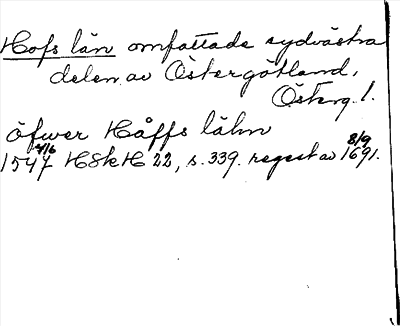 Hofs län omfattade sydvästra
delen av Östergötland.
Österg. l.
öfwer Håffs lähn
1547 4/6 HSH 22, s. 339. regest av 8/9 1691.